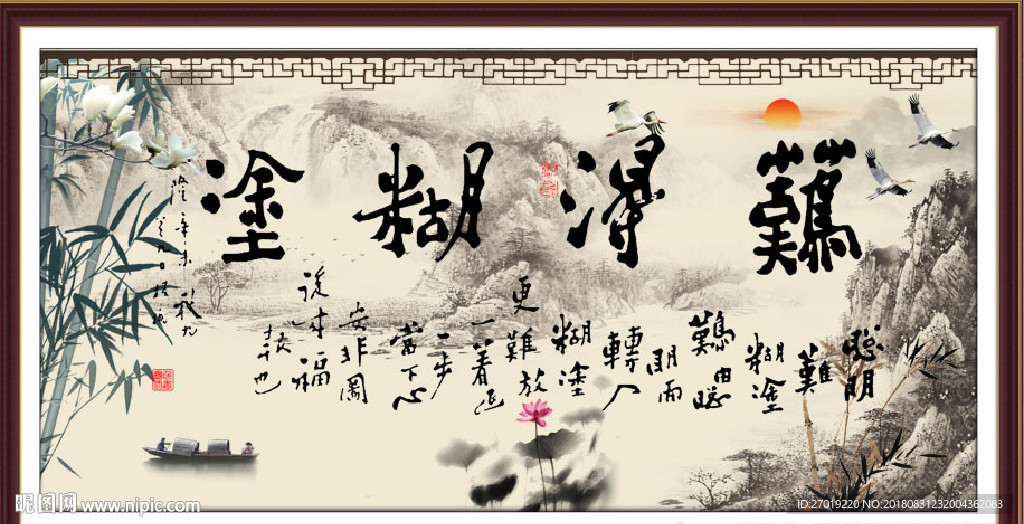 難得糊塗
聰明
難
糊塗
難由聰
明而
轉入
糊塗
更難放
一着退
一步
當下心
安非圖
後来福
报也
昵图网 www.nipic.com
ID:27019220 NO:20180831232004362083